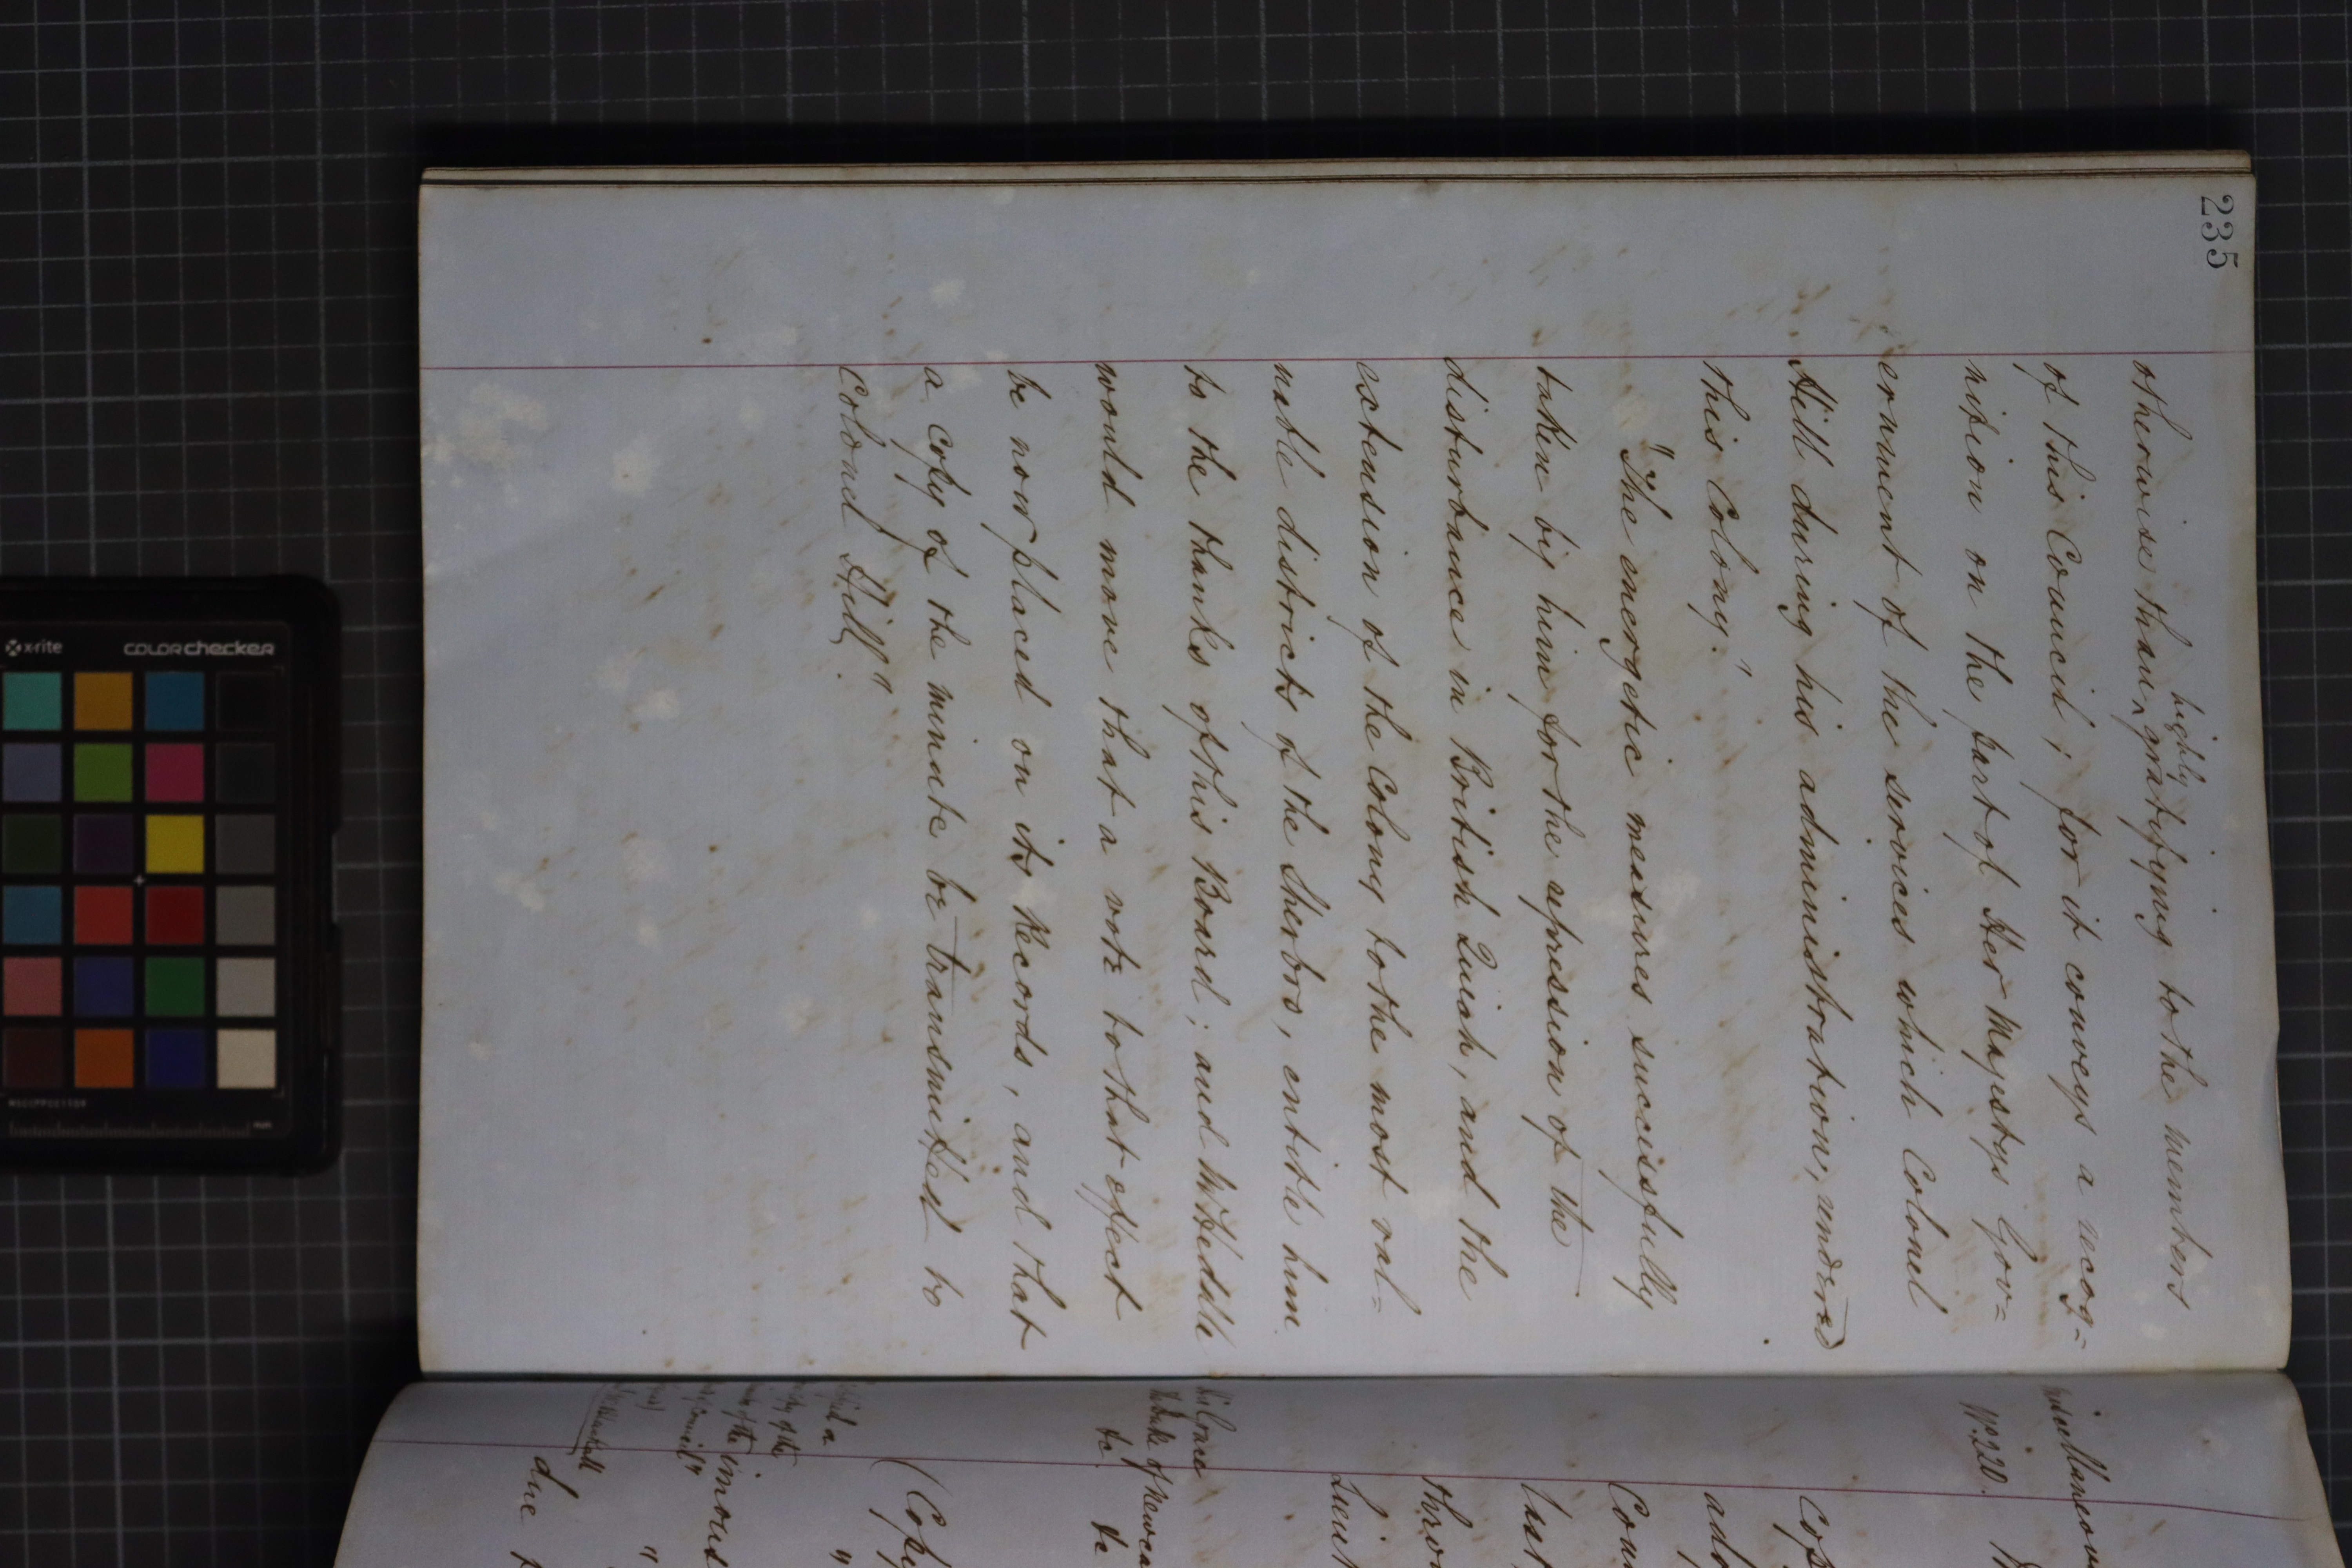 235
otherwise than ^ highly gratifying to the members
of this Council; for it conveys a recog=
nition on the part of Her Majestys Gov=
ernment of the services which Colonel
Hill during his administration, rendered
this Colony."
"The energetic measures successfully
taken by him for the upression of the
disturbance in British Quiah, and the
extension of the Colony to the most val=
uable districts of the Sherbro, entitle him
to the thanks of this Board; and Mr Heddle
would move that a vote to that effect
be now placed on its Records, and that
a copy of the minute be transmitted to
Colonel Hill."
Miscellaneous
No. 220.
His Grace
The Duke of Newca
&c &c
(Copy
due
x-rite
colorchecker